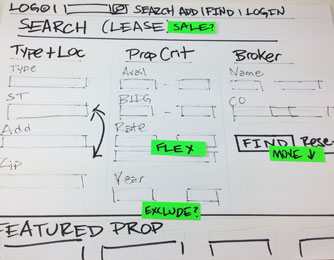 LOGO | SEARCH ADD | FIND | LOGIN
SEARCH (LEASE) SALE?
Type + Loc
Type
ST
Add
Zip
Prop Crit
Avail
BLDG
Rate
FLEX
Year
EXCLUDE?
Broker
Name
CO
FIND Rese
MOVE ↓
FEATURED PROP